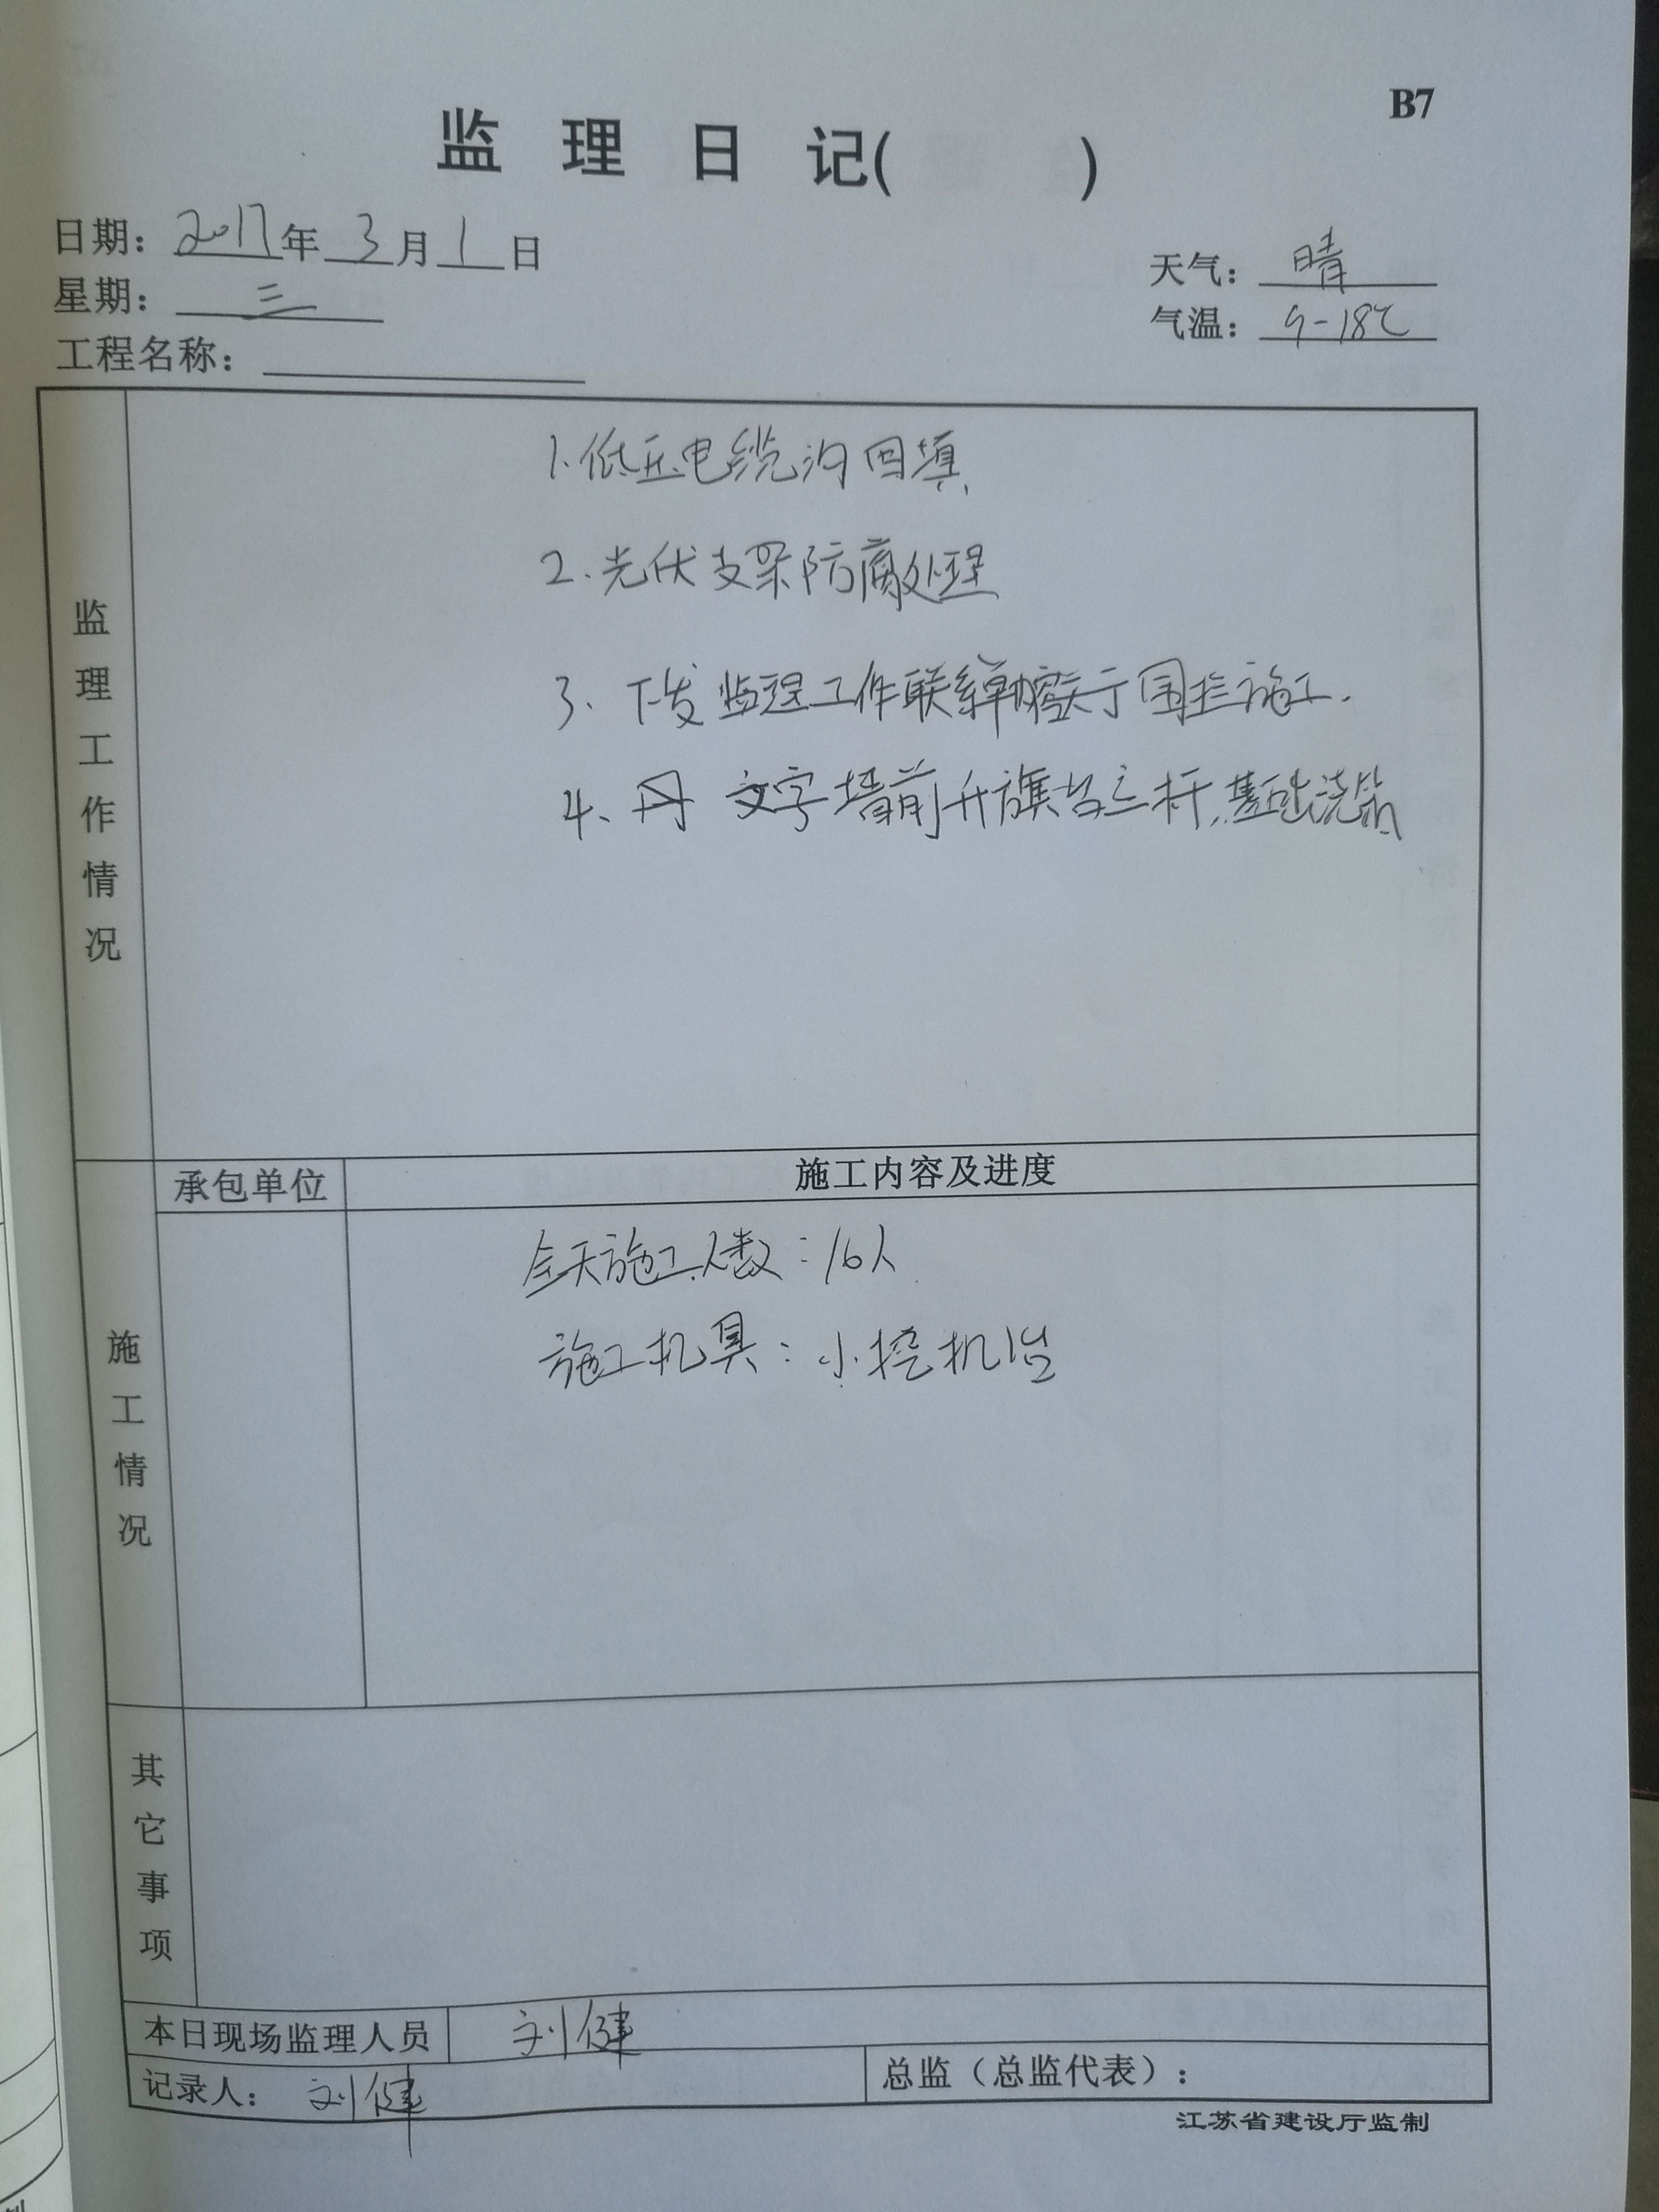 B7
监理日记( )
日期：2017年3月1日
天气：晴
星期：三
气温：9-18℃
工程名称：
监理工作情况
1.低压电缆沟回填
2.光伏支架防腐处理
3、下发监理工作联系单关于围栏施工.
4、文字墙前升旗台立杆,基础浇筑
承包单位
施工内容及进度
施工情况
全天施工人数：16人
施工机具：小挖机1台
其它事项
本日现场监理人员 刘健
记录人：刘健
总监（总监代表）：
江苏省建设厅监制